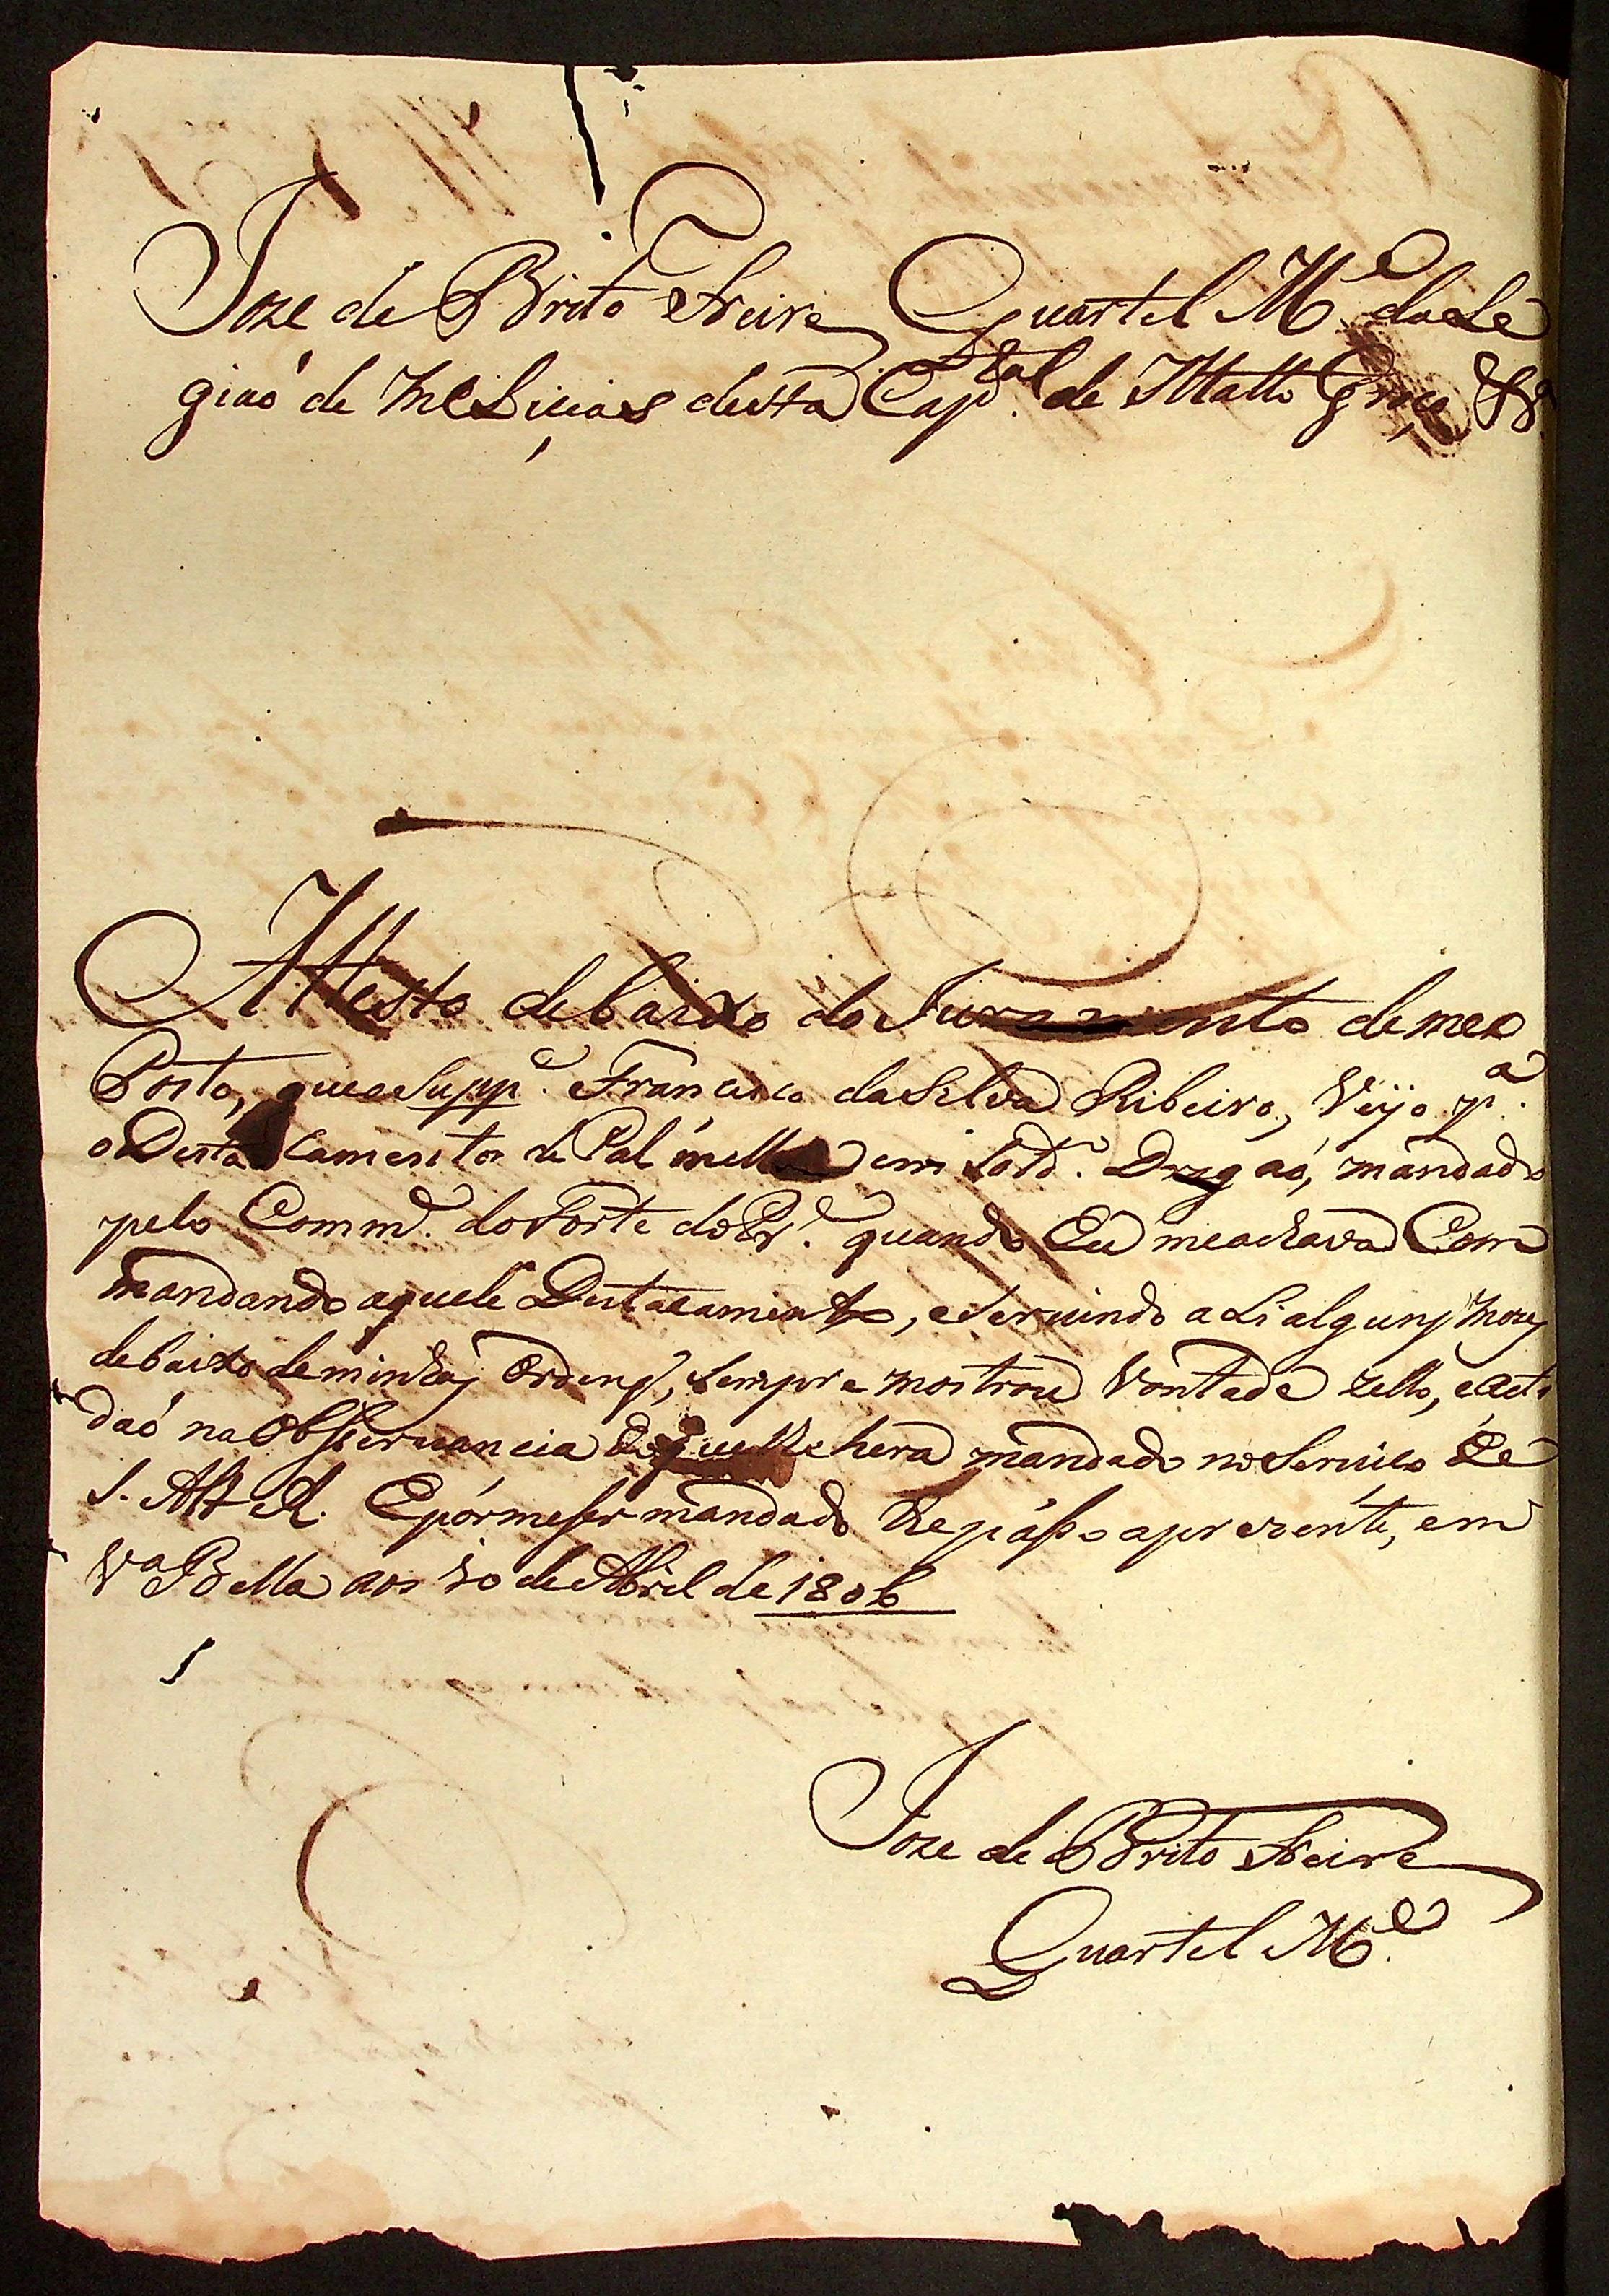 Joze de Brito Freire Quartel Me. da Le
giaó de Meliçias desta Capital. de Matto Groço &&
Attesto debaixo do Juramento de meo
Posto, que o Suppe. Francisco da Silva Ribeiro, Veyo pa.
o Destacamento de Palmella em Soldo. Dragaó, mandado
pelo Commde. do Forte do Pe. quando Eu me achava Com
mandando aquele Destacamento, e Servindo a Li alguns Mezes
debaixo de minhas Ordens, Sempre mostrou Vontade Zello, e acti
daó na Obsservancia do que lhe hera mandado no Serviço de
S. A. R. E pór me ser mandado lhe pásso a prezente, em
Va. Bella aos 30 de Abril de 1806
Joze de Brito Freire
Quartel Me.